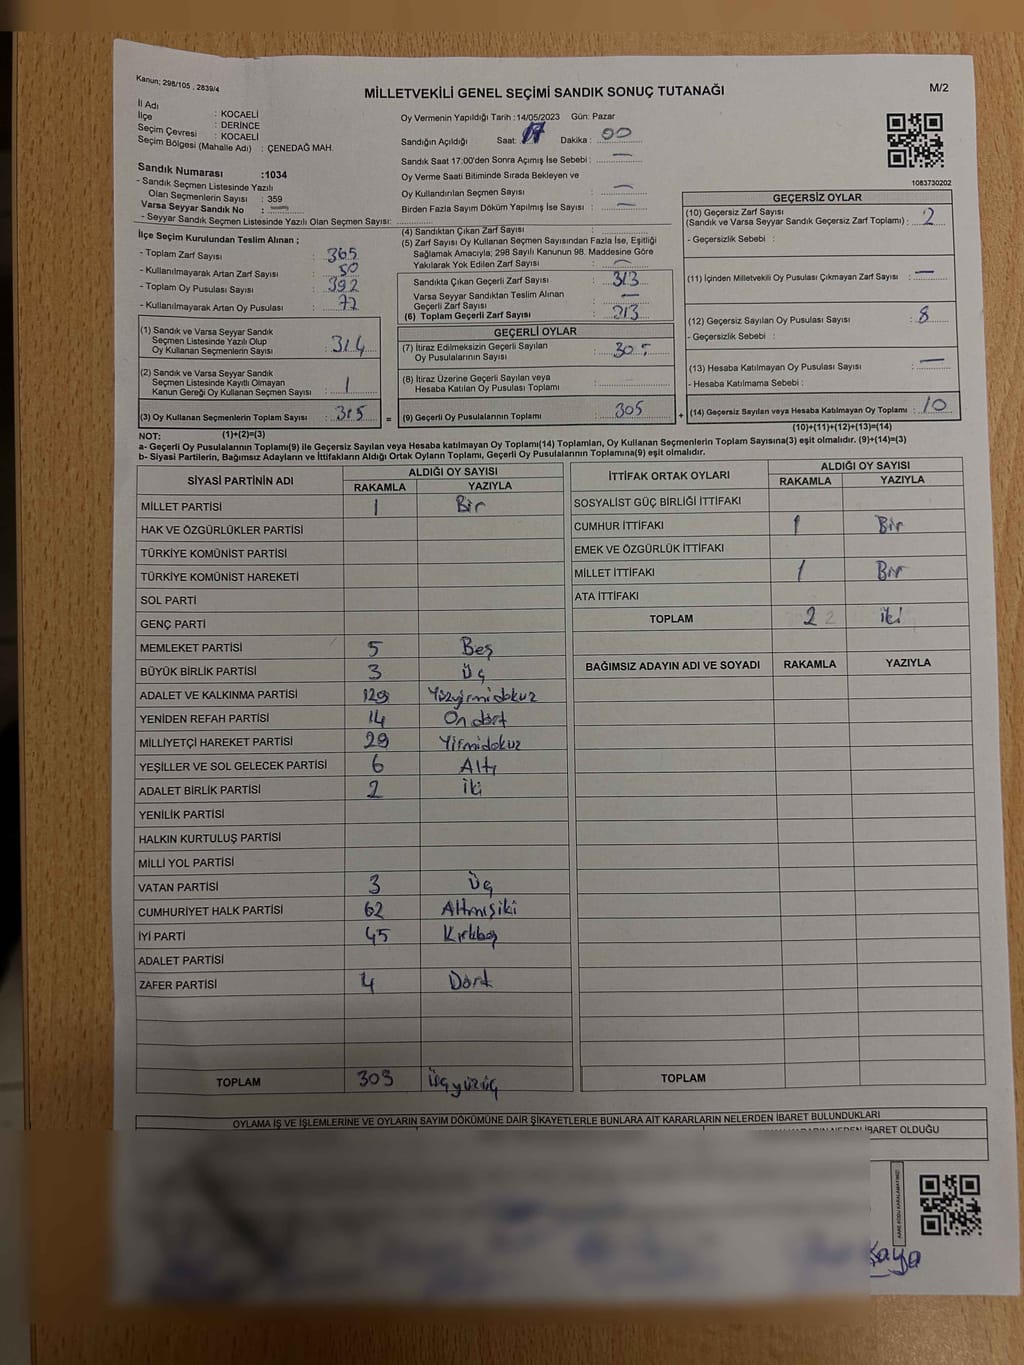 Kanun; 298/105 , 2839/4
MİLLETVEKİLİ GENEL SEÇİMİ SANDIK SONUÇ TUTANAĞI
M/2
İl Adı : KOCAELİ
İlçe : DERİNCE
Seçim Çevresi : KOCAELİ
Seçim Bölgesi (Mahalle Adı) : ÇENEDAĞ MAH.
Sandık Numarası :1034
- Sandık Seçmen Listesinde Yazılı
Olan Seçmenlerin Sayısı : 359
Varsa Seyyar Sandık No :
- Seyyar Sandık Seçmen Listesinde Yazılı Olan Seçmen Sayısı:
Oy Vermenin Yapıldığı Tarih :14/05/2023 Gün: Pazar
Sandığın Açıldığı Saat: 17 Dakika : 00
Sandık Saat 17:00'den Sonra Açımış İse Sebebi : —
Oy Verme Saati Bitiminde Sırada Bekleyen ve
Oy Kullandırılan Seçmen Sayısı : —
Birden Fazla Sayım Döküm Yapılmış İse Sayısı : —
1083730202
İlçe Seçim Kurulundan Teslim Alınan ;
- Toplam Zarf Sayısı : 365
- Kullanılmayarak Artan Zarf Sayısı : 50
- Toplam Oy Pusulası Sayısı : 392
- Kullanılmayarak Artan Oy Pusulası : 77
(1) Sandık ve Varsa Seyyar Sandık
Seçmen Listesinde Yazılı Olup
Oy Kullanan Seçmenlerin Sayısı : 314
(2) Sandık ve Varsa Seyyar Sandık
Seçmen Listesinde Kayıtlı Olmayan
Kanun Gereği Oy Kullanan Seçmen Sayısı : 1
(3) Oy Kullanan Seçmenlerin Toplam Sayısı : 315 =
(4) Sandıktan Çıkan Zarf Sayısı :
(5) Zarf Sayısı Oy Kullanan Seçmen Sayısından Fazla İse, Eşitliği
Sağlamak Amacıyla; 298 Sayılı Kanunun 98. Maddesine Göre
Yakılarak Yok Edilen Zarf Sayısı : —
Sandıkta Çıkan Geçerli Zarf Sayısı : 313
Varsa Seyyar Sandıktan Teslim Alınan
Geçerli Zarf Sayısı : —
(6) Toplam Geçerli Zarf Sayısı : 313
GEÇERLİ OYLAR
(7) İtiraz Edilmeksizin Geçerli Sayılan
Oy Pusulalarının Sayısı : 305
(8) İtiraz Üzerine Geçerli Sayılan veya
Hesaba Katılan Oy Pusulası Toplamı :
(9) Geçerli Oy Pusulalarının Toplamı : 305 +
GEÇERSİZ OYLAR
(10) Geçersiz Zarf Sayısı
(Sandık ve Varsa Seyyar Sandık Geçersiz Zarf Toplamı) : 2
- Geçersizlik Sebebi :
(11) İçinden Milletvekili Oy Pusulası Çıkmayan Zarf Sayısı : —
(12) Geçersiz Sayılan Oy Pusulası Sayısı : 8
- Geçersizlik Sebebi :
(13) Hesaba Katılmayan Oy Pusulası Sayısı : —
- Hesaba Katılmama Sebebi :
(14) Geçersiz Sayılan veya Hesaba Katılmayan Oy Toplamı : 10
NOT: (1)+(2)=(3) (10)+(11)+(12)+(13)=(14)
a- Geçerli Oy Pusulalarının Toplamı(9) ile Geçersiz Sayılan veya Hesaba katılmayan Oy Toplamı(14) Toplamları, Oy Kullanan Seçmenlerin Toplam Sayısına(3) eşit olmalıdır. (9)+(14)=(3)
b- Siyasi Partilerin, Bağımsız Adayların ve İttifakların Aldığı Ortak Oyların Toplamı, Geçerli Oy Pusulalarının Toplamına(9) eşit olmalıdır.
SİYASİ PARTİNİN ADI ALDIĞI OY SAYISI
RAKAMLA YAZIYLA
MİLLET PARTİSİ 1 Bir
HAK VE ÖZGÜRLÜKLER PARTİSİ
TÜRKİYE KOMÜNİST PARTİSİ
TÜRKİYE KOMÜNİST HAREKETİ
SOL PARTİ
GENÇ PARTİ
MEMLEKET PARTİSİ 5 Beş
BÜYÜK BİRLİK PARTİSİ 3 Üç
ADALET VE KALKINMA PARTİSİ 129 Yüzyirmidokuz
YENİDEN REFAH PARTİSİ 14 On dört
MİLLİYETÇİ HAREKET PARTİSİ 29 Yirmidokuz
YEŞİLLER VE SOL GELECEK PARTİSİ 6 Altı
ADALET BİRLİK PARTİSİ 2 iki
YENİLİK PARTİSİ
HALKIN KURTULUŞ PARTİSİ
MİLLİ YOL PARTİSİ
VATAN PARTİSİ 3 Üç
CUMHURİYET HALK PARTİSİ 62 Altmışiki
İYİ PARTİ 45 Kırkbeş
ADALET PARTİSİ
ZAFER PARTİSİ 4 Dört
TOPLAM 303 üçyüzüç
İTTİFAK ORTAK OYLARI ALDIĞI OY SAYISI
RAKAMLA YAZIYLA
SOSYALİST GÜÇ BİRLİĞİ İTTİFAKI
CUMHUR İTTİFAKI 1 Bir
EMEK VE ÖZGÜRLÜK İTTİFAKI
MİLLET İTTİFAKI 1 Bir
ATA İTTİFAKI
TOPLAM 2 2 iki
BAĞIMSIZ ADAYIN ADI VE SOYADI RAKAMLA YAZIYLA
TOPLAM
OYLAMA İŞ VE İŞLEMLERİNE VE OYLARIN SAYIM DÖKÜMÜNE DAİR ŞİKAYETLERLE BUNLARA AİT KARARLARIN NELERDEN İBARET BULUNDUKLARI
İBARET OLDUĞU
KARE KODU KARALAMAYINIZ!
Kaya